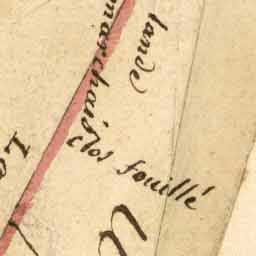 lande
marchais
clos fouillé